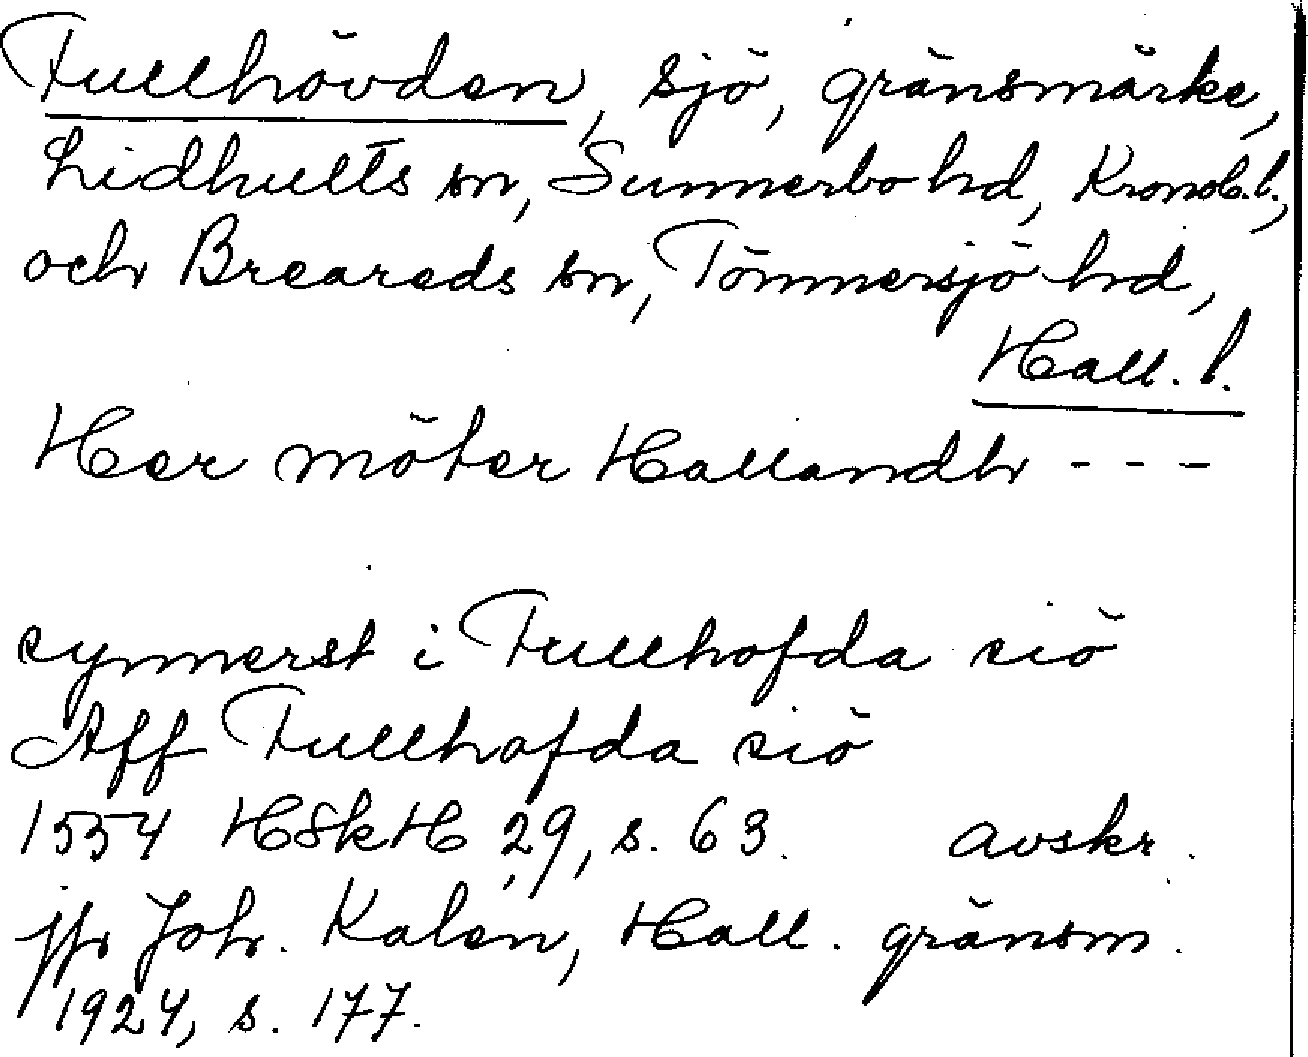 Fullhövden, sjö, gränsmärke,
Lidhults sn, Sunnerbo hd, Kronob. l.,
och Breareds sn, Tönnersjö hd,
Hall. l.
Her möter Hallandh - - -
synnerst i Fullhofda siö
Aff Fullhofda siö
1554 HSkH 29, s. 63. avskr.
jfr Joh. Kalén, Hall. gränsm.
1924, s. 177.